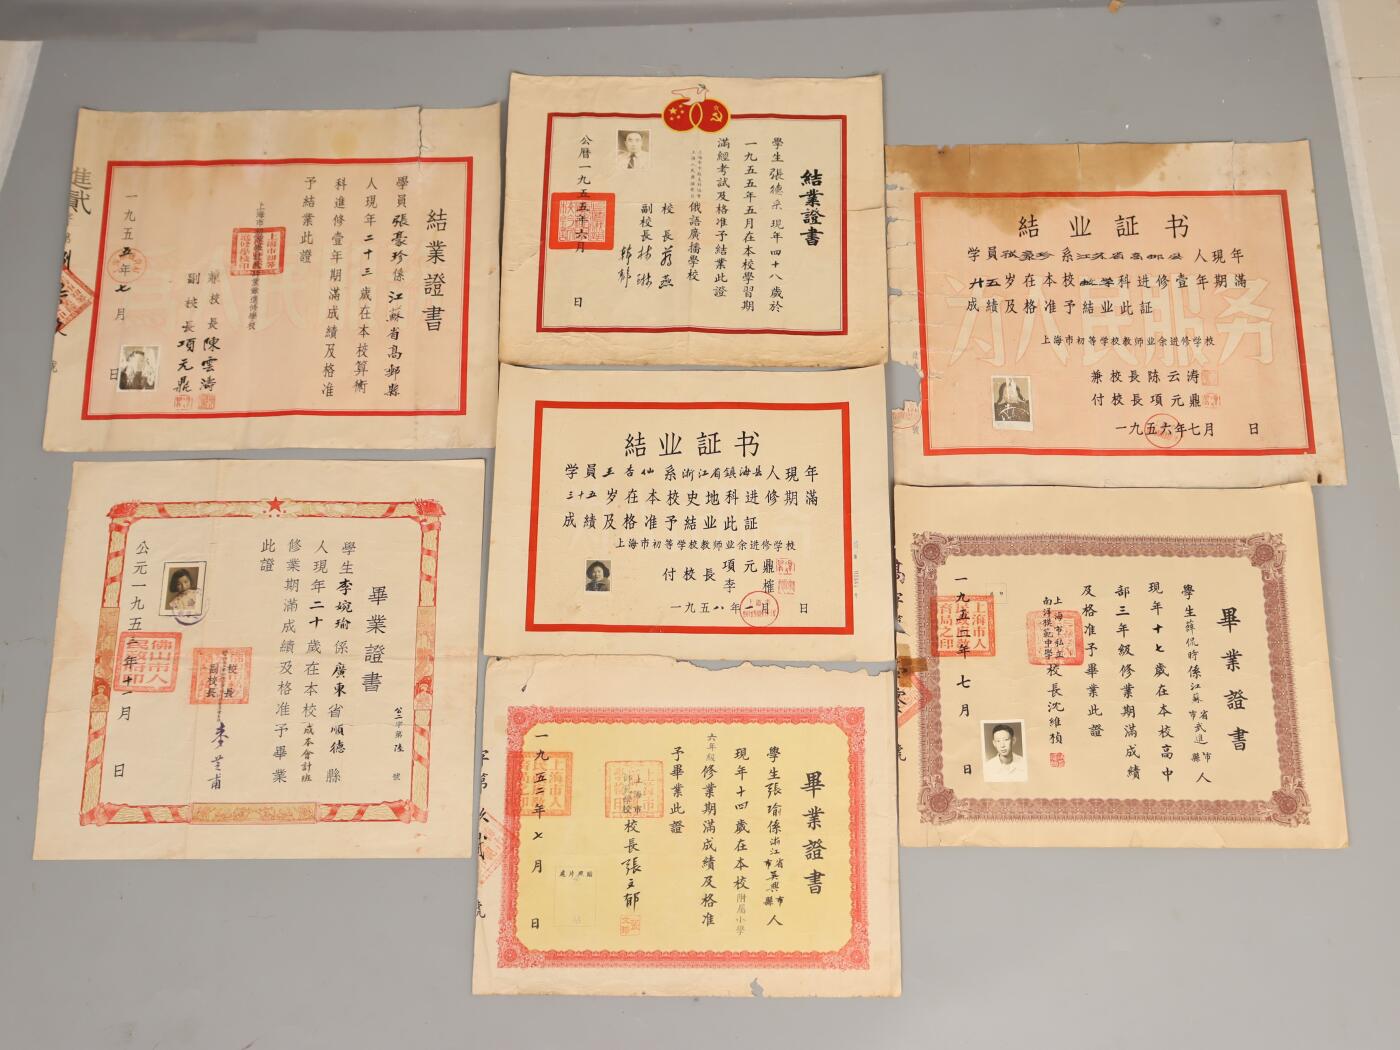 結業證書
學員張豪珍係江蘇省高郵縣
人現年二十三歲在本校算術
科進修壹年期滿成績及格准
予結業此證
兼校長陳雲濤
副校長項元鼎
一九五五年七月
日
結業證書
學生張德采現年四十八歲於
一九五五年五月在本校學習期
滿經考試及格准予結業此證
俄語廣播學校
校長
副校長
公曆一九五五年六月
日
結业証书
学員张豪珍系江苏省高邮县人現年
廿五岁在本校数学科进修壹年期滿
成績及格准予結业此証
为人民服务
上海市初等学校教师业余进修学校
兼校長陈云涛
付校長項元鼎
一九五六年七月 日
畢業證書
學生李婉瑜係廣東省順德縣
人現年二十歲在本校成本會計班
修業期滿成績及格准予畢業
此證
校長
副校長
公元一九五
年十一月
日
佛山市人
結业証书
学員王杏仙系浙江省鎮海县人現年
三十五岁在本校史地科进修期滿
成績及格准予結业此証
上海市初等学校教师业余进修学校
付校長項元鼎
李權
一九五八年一月 日
畢業證書
學生張瑜係浙江省吳興縣市人
現年十四歲在本校附屬小學
六年級修業期滿成績及格准
予畢業此證
校長張立郁
一九五二年七月
日
貼照片處
畢業證書
學生薛侃時係江蘇省武進縣市人
現年十七歲在本校高中
部三年級修業期滿成績
及格准予畢業此證
上海市私立
南洋模範中學校長沈維楨
一九五二年七月
日
上海市人
民政府教
育局之印